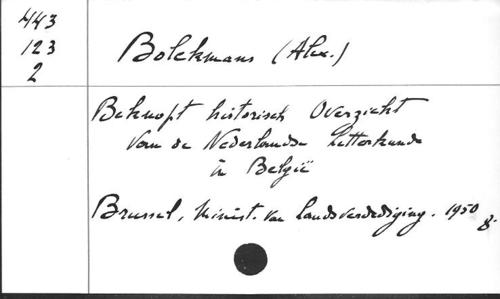 443
123
2
Bolckmans (Alex.)
Beknopt historisch Overzicht
van de Nederlandse letterkunde
in België
Brussel, Minist. van Landsverdediging. 1950
8.